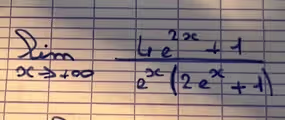 lim x→+∞ (4e^{2x} + 1) / (e^x (2e^x + 1))